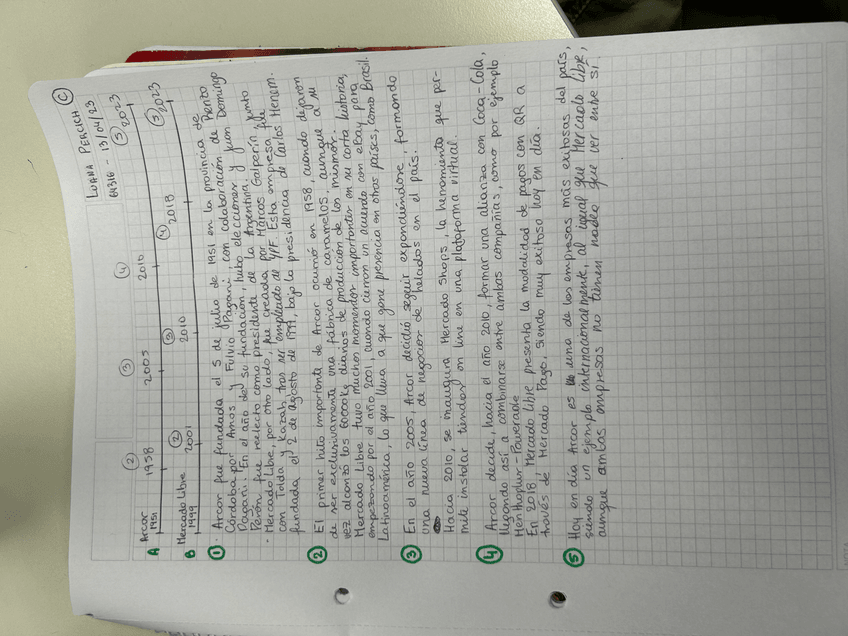 LUANA PERCICH
64316 - 13/04/23
C
Arcor 1958 ② 2005 ③ 2010 ④ ⑤ 2023
A 1951
Mercado Libre ② ③ ④ 2018 ⑤ 2023
B 1999 2001 2010
① · Arcor fue fundada el 5 de julio de 1951 en la provincia de
Córdoba por Amos y Fulvio Pagani, con colaboración de Renzo
Pagani. En el año de su fundación, hubo elecciones y Juan Domingo
Perón fue reelecto como presidente de la Argentina.
- Mercado Libre, por otro lado, fue creada por Marcos Galperín, junto
con Tolda y Kazah, tras ser empleado de YPF. Esta empresa fue
fundada el 2 de agosto de 1999, bajo la presidencia de Carlos Menem.
② El primer hito importante de Arcor ocurrió en 1958, cuando dejaron
de ser exclusivamente una fábrica de caramelos, aunque a su
vez alcanzó los 60000kg diarios de producción de los mismos.
Mercado Libre tuvo muchos momentos importantes en su corta historia,
empezando por el año 2001, cuando cierran un acuerdo con eBay para
Latinoamérica, lo que lleva a que gane presencia en otros países, como Brasil.
③ En el año 2005, Arcor decidió seguir expandiéndose, formando
una nueva línea de negocios de helados en el país.
Hacia 2010, se inaugura Mercado Shops, la herramienta que per-
mite instalar tiendas on line en una plataforma virtual.
④ Arcor decide, hacia el año 2010, formar una alianza con Coca-Cola,
llegando así a combinarse entre ambas compañías, como por ejemplo
Menthoplus-Powerade
En 2018, Mercado Libre presenta la modalidad de pagos con QR a
través de Mercado Pago, siendo muy exitoso hoy en día.
⑤ Hoy en día Arcor es una de las empresas más exitosas del país,
siendo un ejemplo internacionalmente, al igual que Mercado Libre,
aunque ambas empresas no tienen nada que ver entre sí.